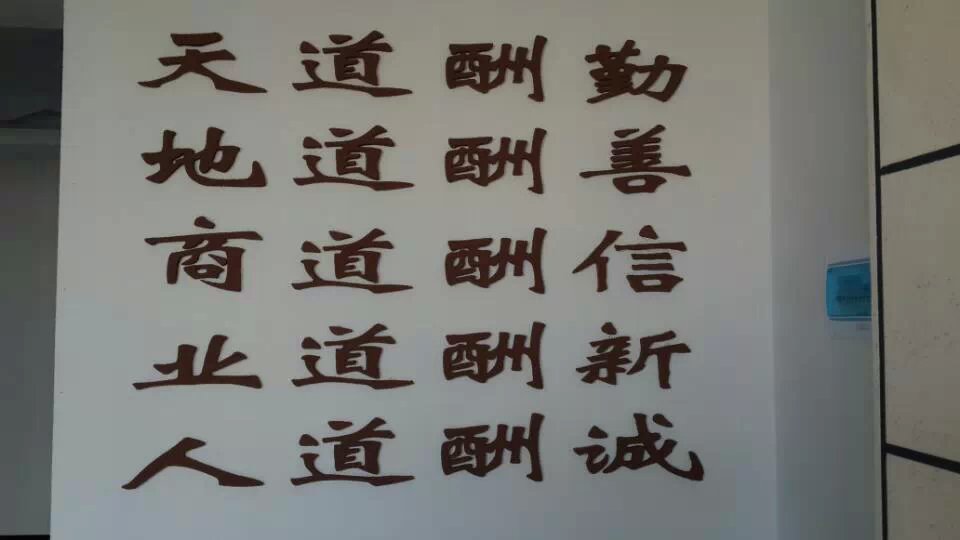 天道酬勤
地道酬善
商道酬信
业道酬新
人道酬诚